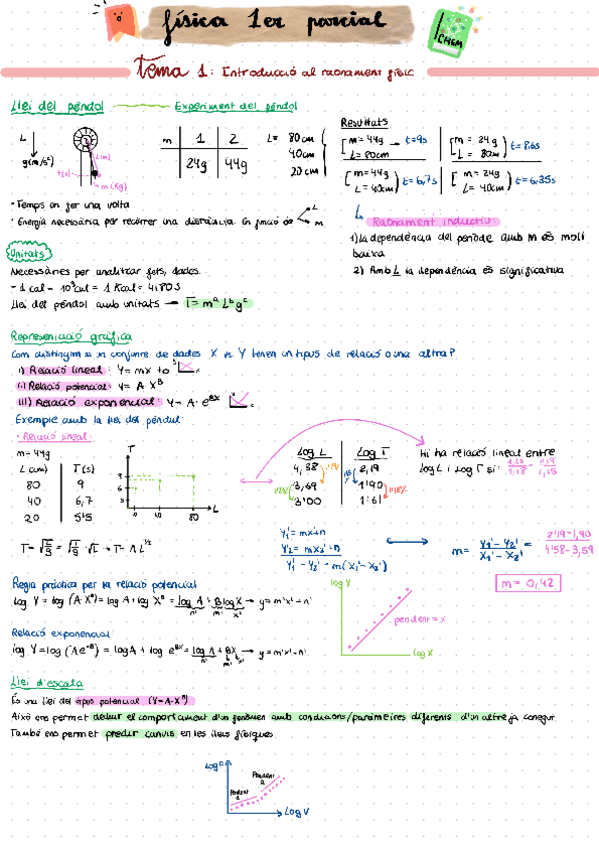 física 1er parcial
CHEM
Tema 1: Introducció al raonament físic
Llei del pèndol
Experiment del pèndol
Resultats
L
g(m/s²)
m (kg)
m | 1 | 2
24g | 44g
L = 80cm
40cm
20cm
m = 44g
L = 80cm
t=9s
m = 24g
L = 80cm
t=8.6s
m=44g
L=40cm
t=6,7s
m= 24g
L= 40cm
t=6,35s
· Temps en fer una volta
· Energia necessària per recórrer una distància. En funció de L
m
Raonament inductiu:
1) la dependència del pèndol amb m és molt
baixa
2) Amb L la dependència és significativa
Unitats
Necessàries per analitzar fets, dades.
- 1 cal - 10³cal = 1 Kcal = 4180 J
Llei del pèndol amb unitats → T = mᵃ Lᵇ gᶜ
Representació gràfica
Com distingim si un conjunt de dades X vs Y tenen un tipus de relació o una altra?
i) Relació lineal: Y = mx + o
ii) Relació potencial: y = A·Xᴮ
iii) Relació exponencial: Y = A·eᴮˣ
Exemple amb la llei del pèndul:
· Relació lineal:
m = 44g
L (cm) | T (s)
80 | 9
40 | 6,7
20 | 5'5
T
L
40
80
Log L | Log T
4,38 | 2,19
3,69 | 1'90
3'00 | 1'61
Hi ha relació lineal entre
log L i Log T si:
Y₁' = mx+n
Y₂' = mX₂'+n
Y₁' - Y₂' = m(X₁' - X₂')
m = Y₁' - Y₂' / X₁' - X₂' = 2'19 - 1,90 / 4'38 - 3,69
m = 0,42
Regla pràctica per la relació potencial
log Y = log (A·Xᴮ) = log A + log Xᴮ = log A + B log X → y = m'x' + n'
log Y
pendent = x
log X
Relació exponencial:
log Y = log (Aeˣᴮ) = log A + log eᴮˣ = log A + BX → y = m'x' + n'
Llei d'escala
És una llei del tipus potencial (Y=A·Xᴮ)
Això ens permet deduir el comportament d'un fenòmen amb condicions/paràmetres diferents d'un altre ja conegut.
També ens permet predir canvis en les lleis físiques.
Pendent
Pendent
Log V